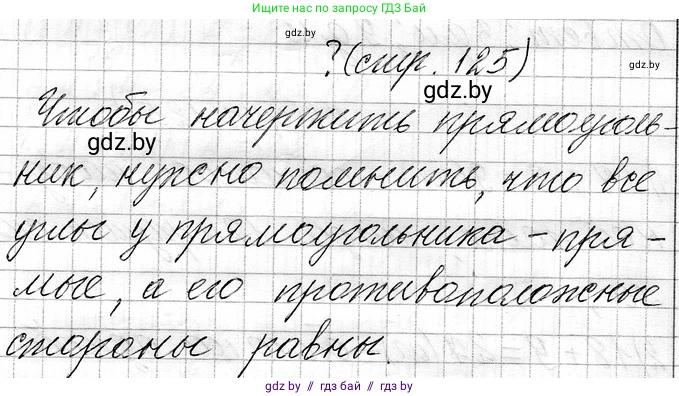 Ищите нас по запросу ГДЗ Бай
gdz.by
?(стр. 125)
gdz.by
gdz.by
Чтобы начертить прямоуголь-
gdz.by
ник, нужно помнить, что все
углы у прямоугольника - пря-
мые, а его противоположные
стороны равны.
gdz.by // гдз бай // gdz.by